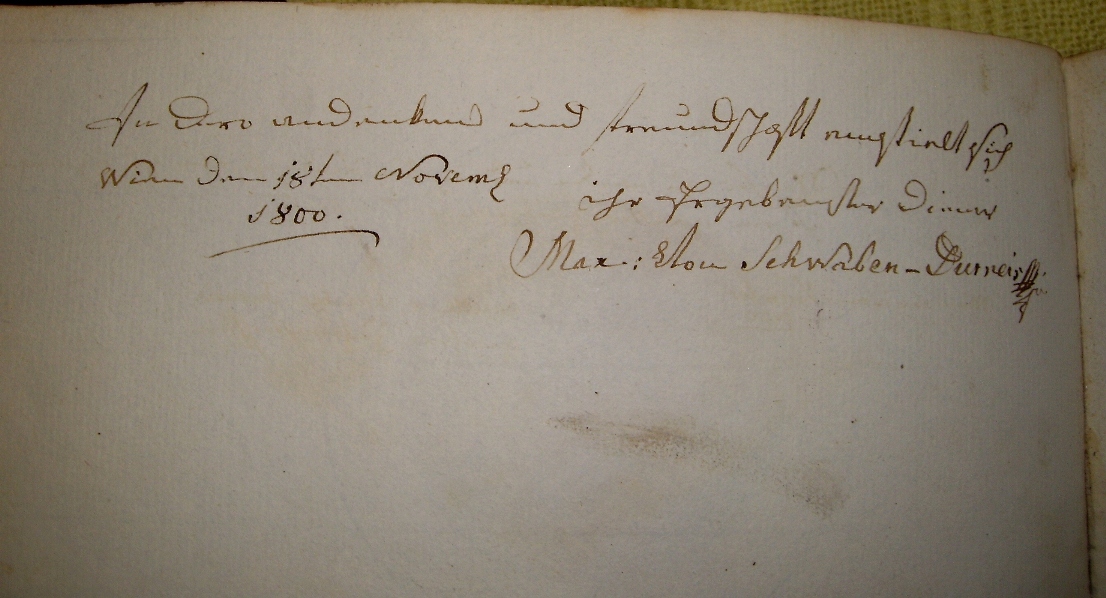 In Dero andenken und freundschaft empfielt sich
Wien den 18ten Novemb
1800.
ihr Ergebenster Diener
Max: Von Schwaben-